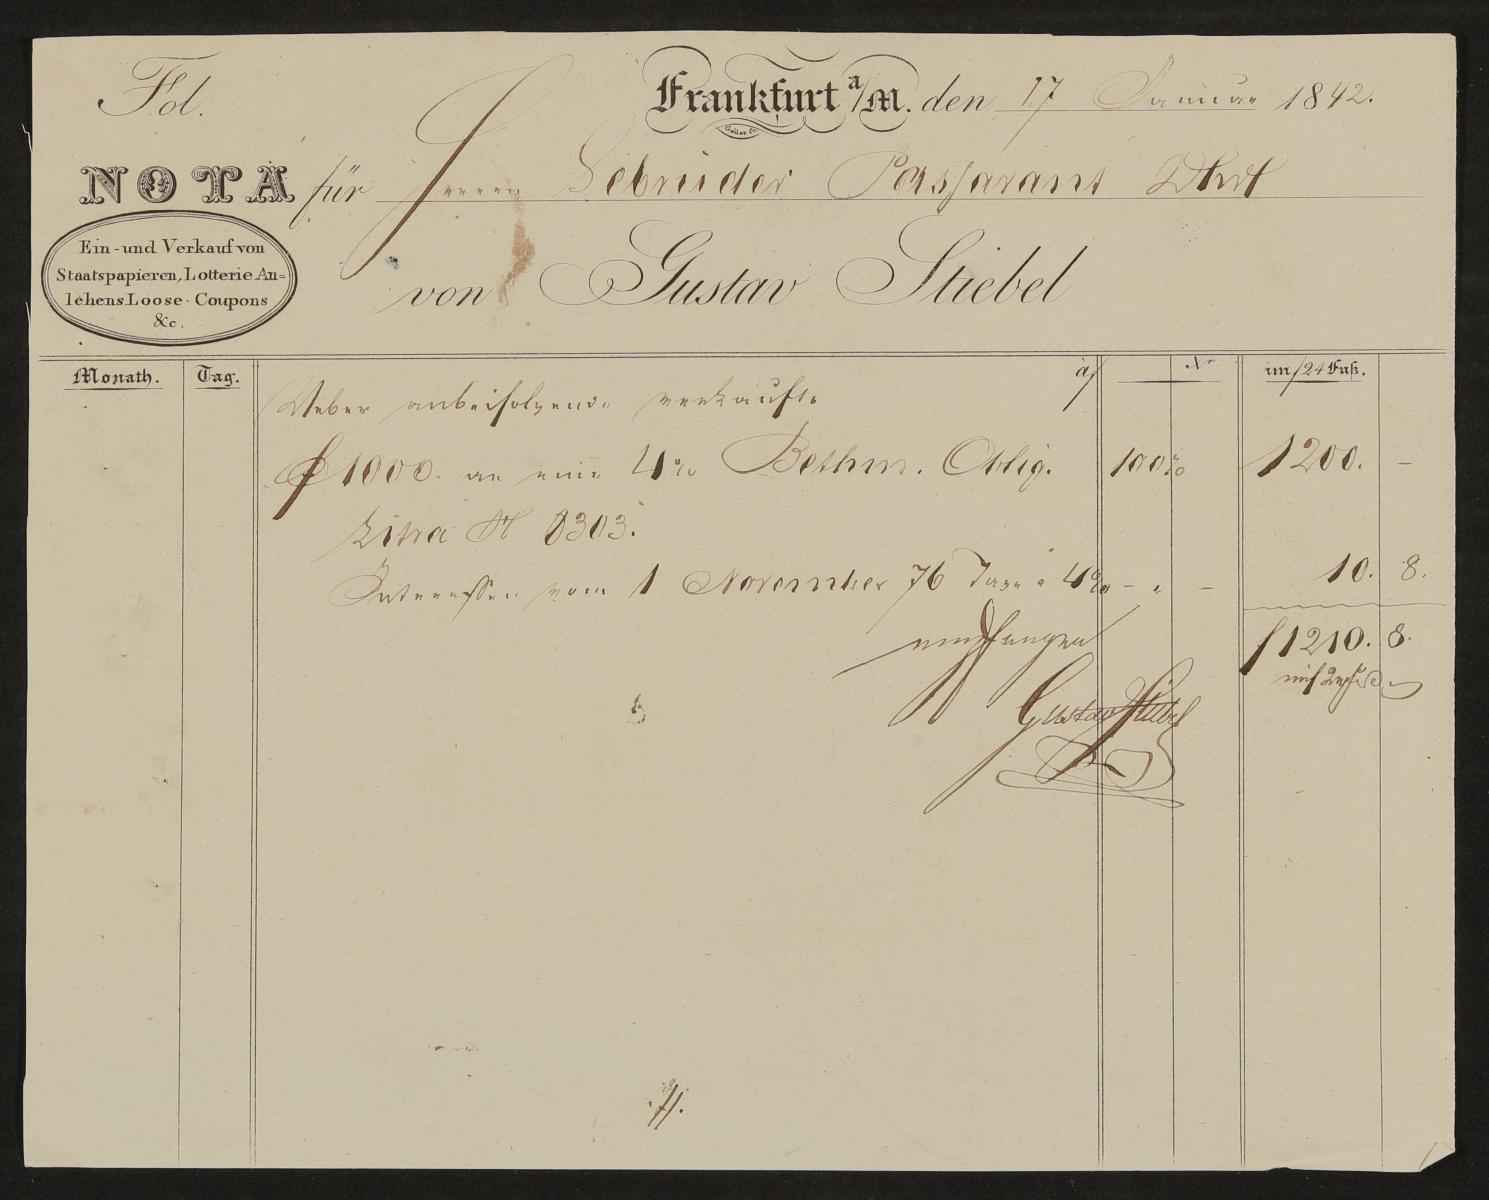 Fol.
Frankfurt a/M. den 17 Januar 1842.
NOTA für Herren Gebrüder Passavant Dhier
Ein- und Verkauf von
Staatspapieren, Lotterie An=
lehens Loose - Coupons
&c.
von Gustav Stiebel
Monath. Tag. à im f24 Fuß.
Ueber anbeifolgende verkaufte
f 1000. an eine 4% Bethm. Oblig. 100% 1200. –
Litra H 8303.
Interessen vom 1 November 76 Tage à 4% – " – 10. 8.
f 1210. 8.
empfangen
Gustav Stiebel